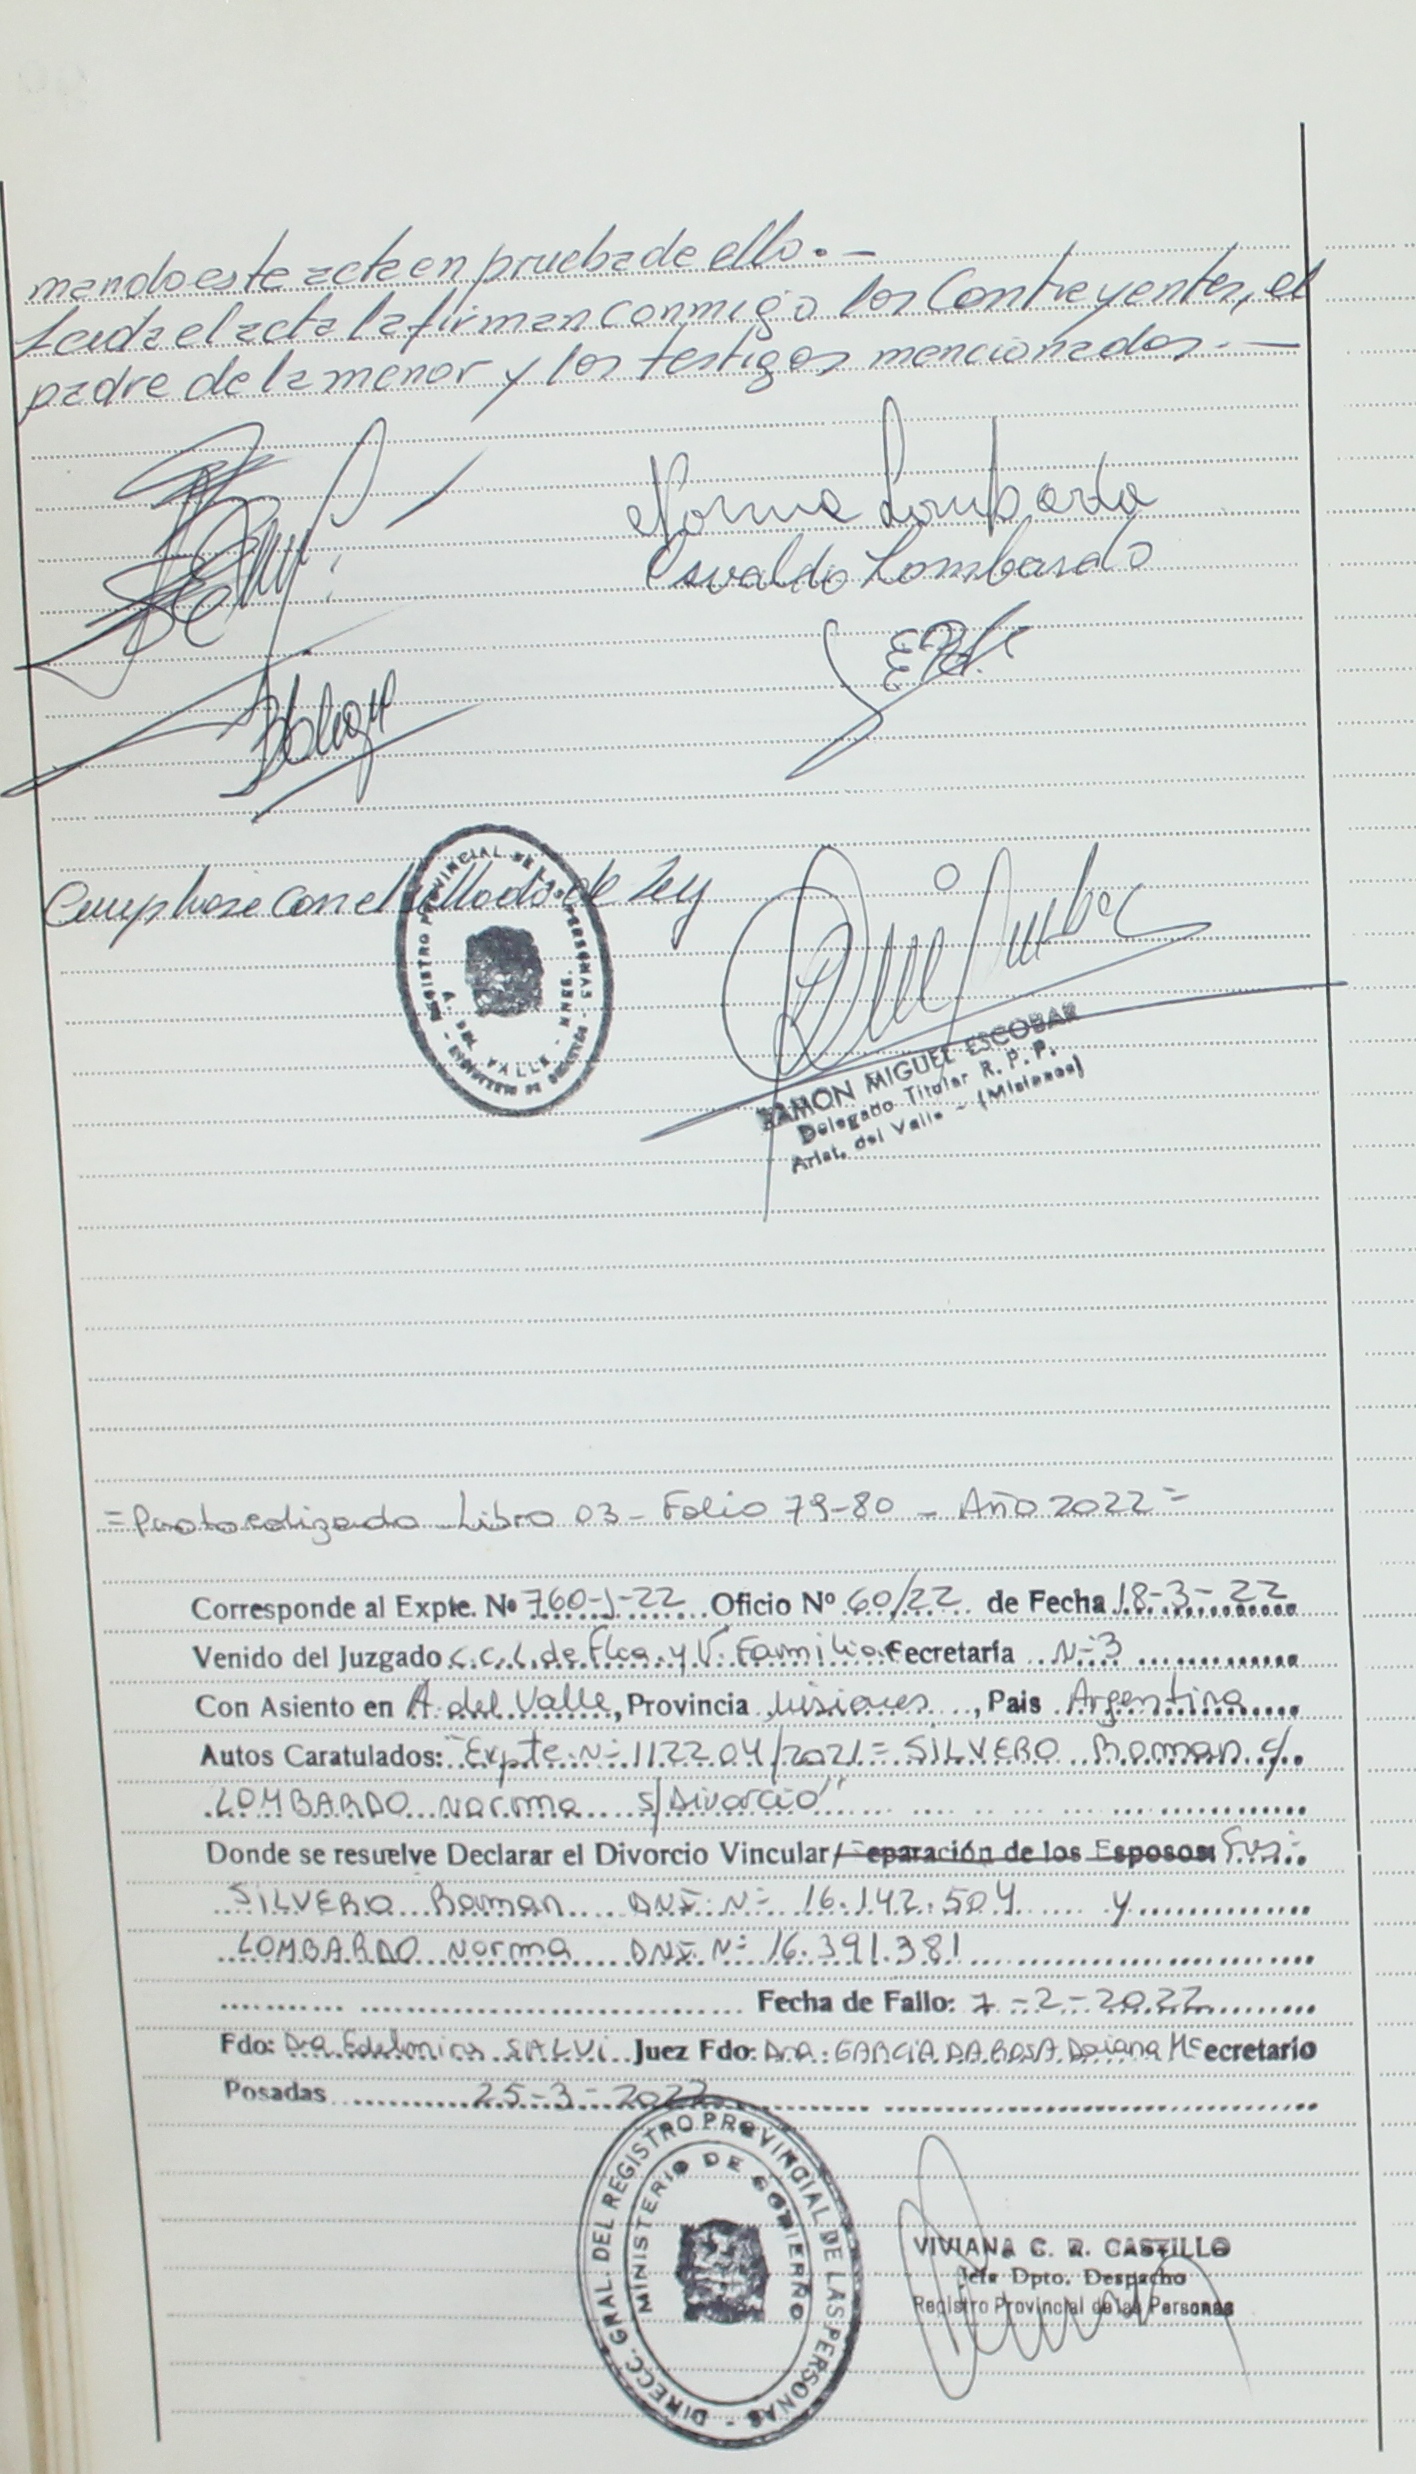 mando este acta en prueba de ello.-
Leida el acta la firman conmigo los Contreyentes, el
padre de la menor y los testigos mencionados.-
Norma Lombardo
Osvaldo Lombardo
Cumplase con el sellado de Ley
REGISTRO PROVINCIAL DE LAS PERSONAS
A. DEL VALLE - MNES.
RAMON MIGUEL ESCOBAR
Delegado Titular R. P. P.
Arist. del Valle - (Misiones)
=Protocolizado Libro 03- Folio 79-80 - Año 2022=
Corresponde al Expte. Nº 760-J-22 Oficio Nº 60/22 de Fecha 18-3-22
Venido del Juzgado C.C.L. de Flia. y V. Familiar Secretaría Nº3
Con Asiento en A. del Valle, Provincia Misiones, Pais Argentina
Autos Caratulados: "Expte. Nº 112204/2021= SILVERO Roman c/
LOMBARDO Norma s/Divorcio"
Donde se resuelve Declarar el Divorcio Vincular/Separación de los Esposos:
SILVERO Roman DNI. Nº 16.142.504 y
LOMBARDO Norma DNI. Nº 16.391.381
Fecha de Fallo: 7-2-2022
Fdo: Dra. Edelmira SALVI Juez Fdo: Dra. GARCIA DA ROSA Daiana M. Secretario
Posadas 25-3-2022
DIRECC. GRAL. DEL REGISTRO PROVINCIAL DE LAS PERSONAS
MINISTERIO DE GOBIERNO
VIVIANA C. R. CASTILLO
Jefa Dpto. Despacho
Registro Provincial de las Personas